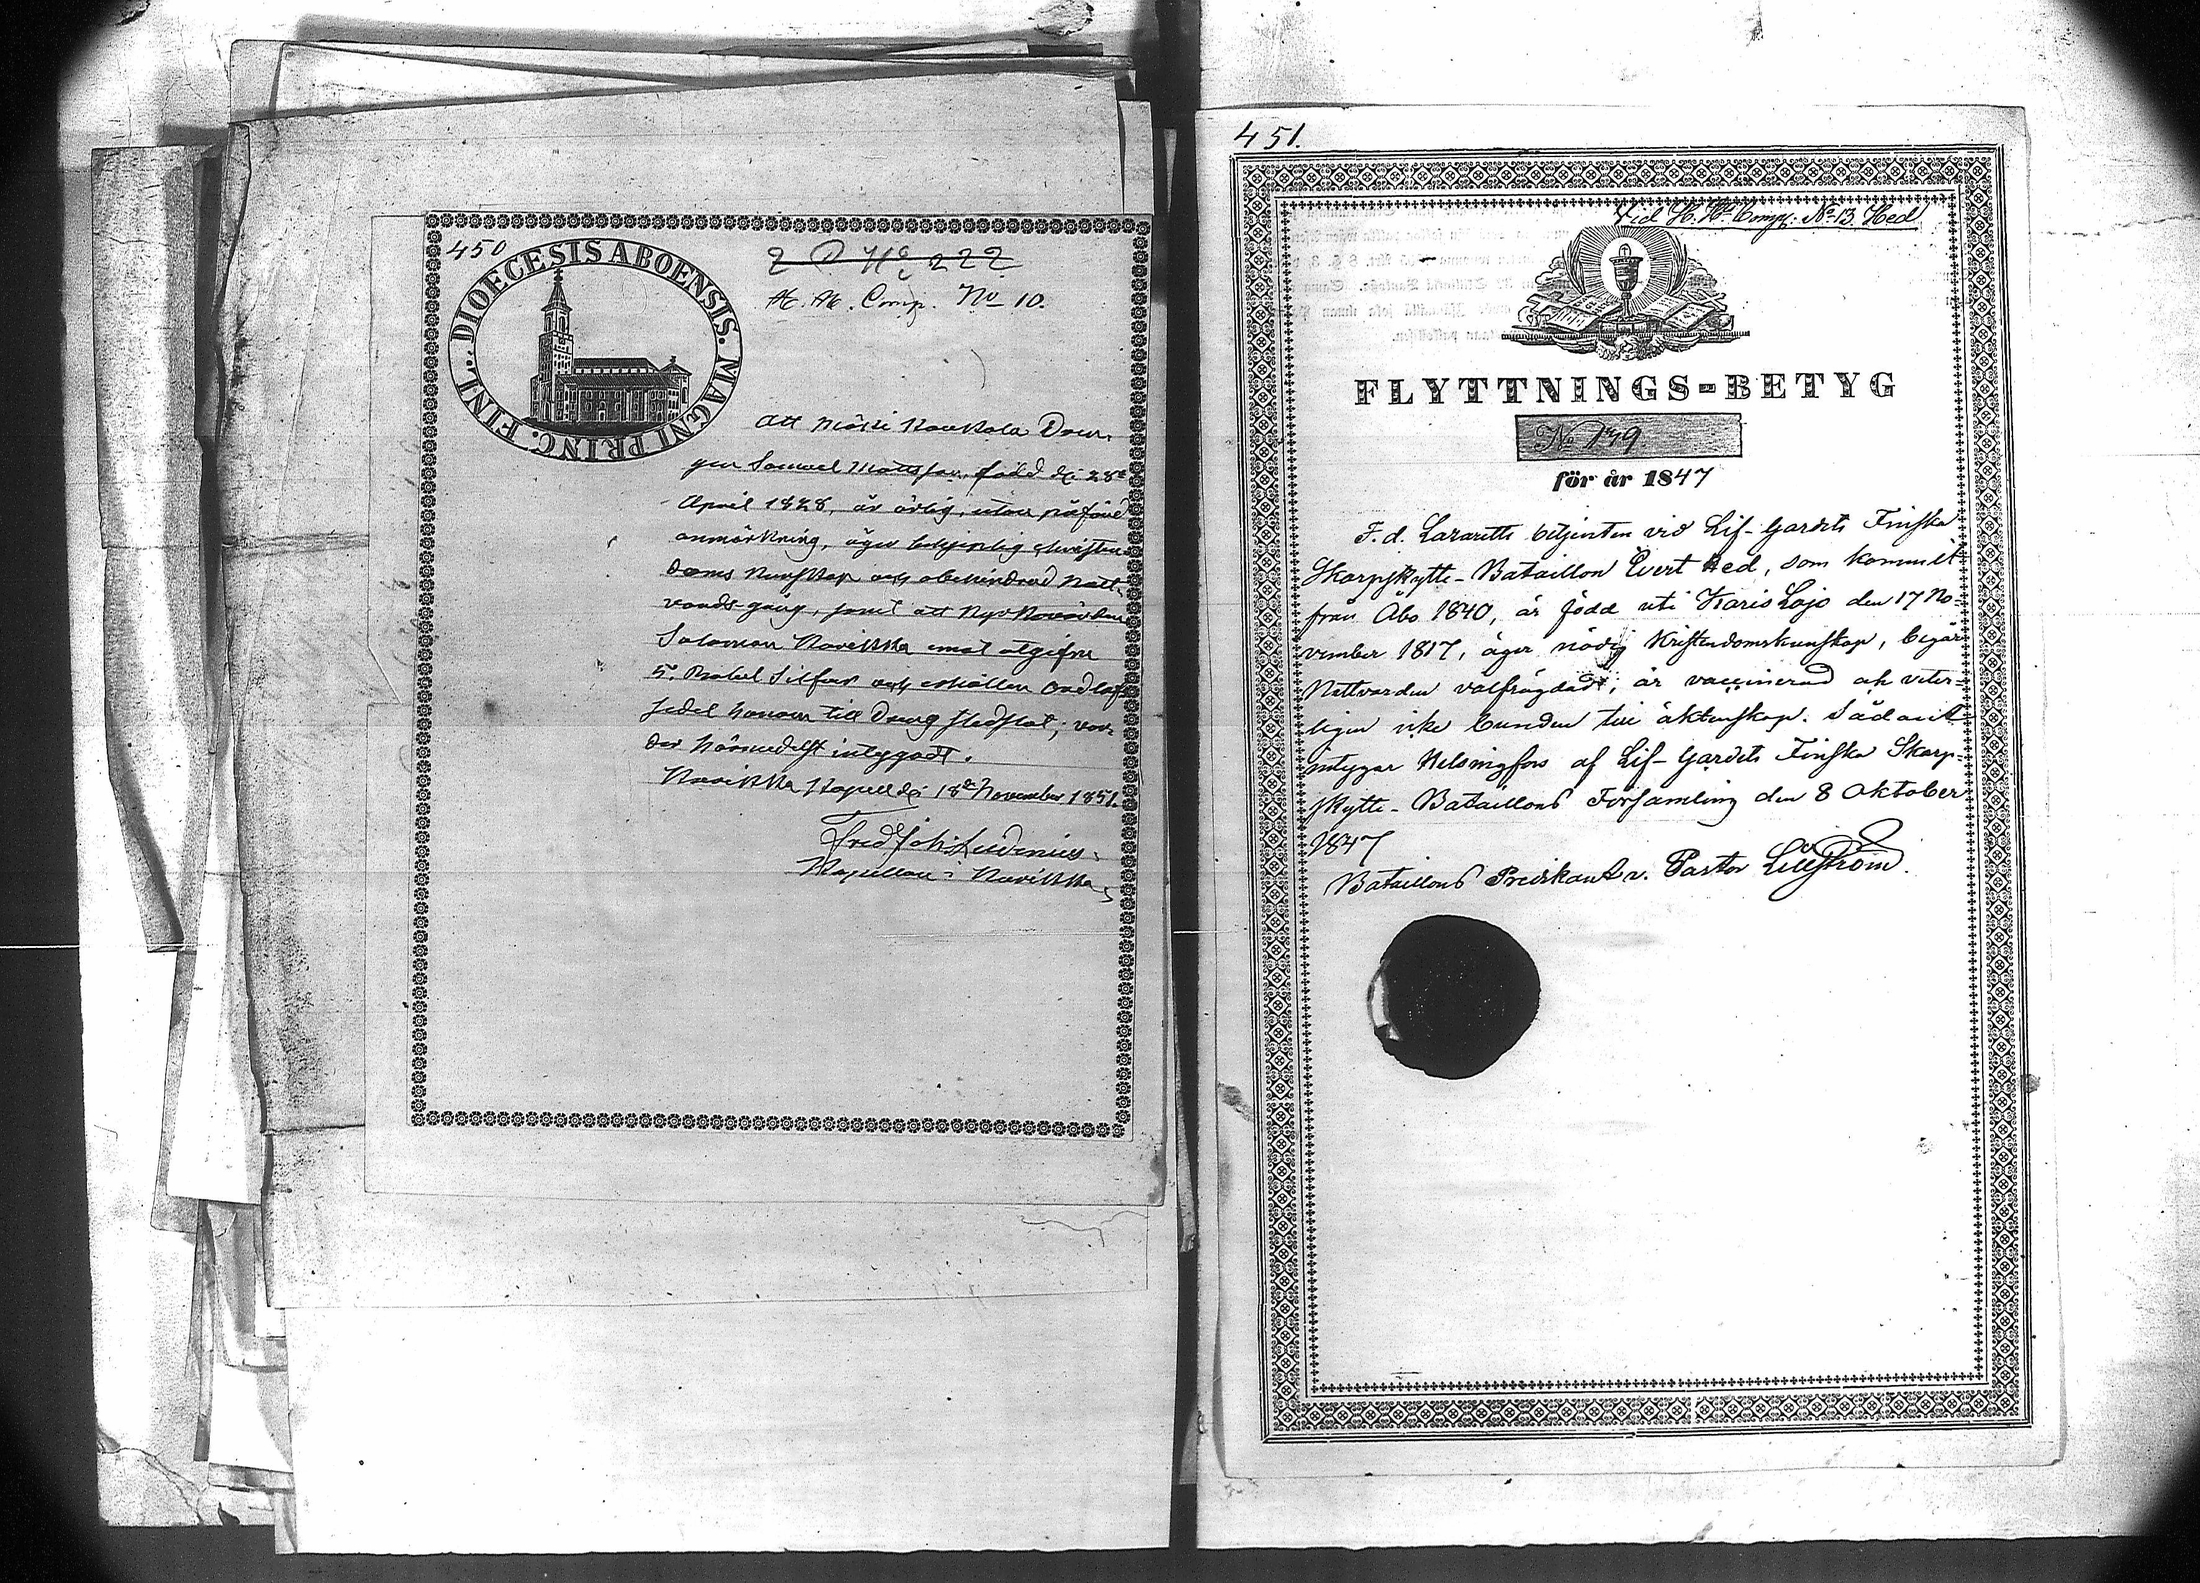 450
DIOECESIS ABOENSIS. MAGNI PRINC. FINL.
2 222
Comp. No 10.
Att Drän-
gen Samuel Mattsson, född d. 28de
April 1828, är ärlig, utan påförd
anmärkning, äger behjerlig christen-
doms kunskap och obehindrad natt-
vards-gång, samt att
Salomon emot utgifne
5 Rubel Silfver och erhållen orlofs
sedel honom till Dräng stedslat; var-
der härmedelst intygadt.
Kapell d. 18de November 1851.
Fred Joh
Kapellan i
451.
Vid Comp. No 13 Hed
FLYTTNINGS-BETYG
No 179
för år 1847
F. d. Lazaretts betjenten vid Lif-Gardets Finska
Skarpskytte-Bataillon Evert Hed, som kommit
från Åbo 1840, är född uti Karis Lojo den 17 No-
vember 1817, äger nödig Kristendomskunskap, begår
Nattvarden välfrägdad, är vaccinerad och veter-
ligen icke bunden till äktenskap. Sådant
intygar Helsingfors af Lif-Gardets Finska Skarp-
skytte-Bataillons Församling den 8 Oktober
1847
Bataillons Predikant v. Pastor Lillström.